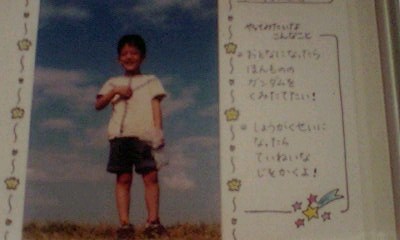 やってみたいな
こんなこと
おとなになったら
ほんものの
ガンダムを
くみたてたい!
しょうがくせいに
なったら
ていねいな
じをかくよ!